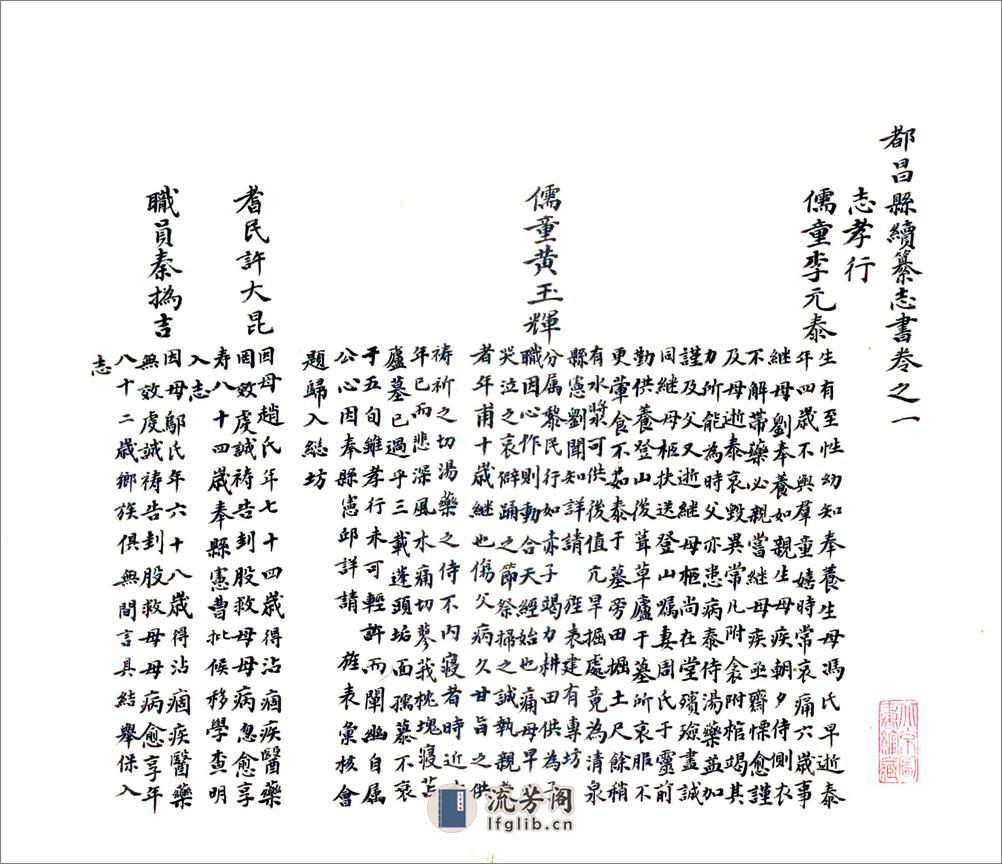 都昌縣續纂志書卷之一
志孝行
儒童李元泰
生有至性幼知奉養生母馮氏早逝泰
年四歲不與羣童嬉時常哀痛六歲事
繼母劉奉養如親生母疾朝夕侍側衣
不解帶藥必親嘗繼母疾亟齋慄愈謹
及母逝泰哀毀異常凡附衾附棺竭其
力所能為時父亦患病泰侍湯藥益加
謹及父又逝繼母柩尚在堂殯殮盡誠
同繼母柩扶送登山囑妻周氏于靈前
勤供養登山後葺草廬于墓所哀服不
更葷食不茹泰于墓旁田掘土尺餘稍
有水漿可供後值亢旱掘處竟為清泉
縣憲劉聞知詳請 旌表建有專坊
儒童黃玉輝
分屬黎民行如赤子竭力耕田供為子
職因心作則動合天經始也痛母早
哭泣之哀擗踊之節祭掃之誠執親
者年甫十歲繼也傷父病久甘旨之供
祷祈之切湯藥之侍不內寢者時近
年已而悲深風水痛切蓼莪枕塊寢苫
廬墓已過乎三載蓬頭垢面孺慕不衰
于五旬雖孝行未可輕許而闡幽自屬
公心因奉縣憲邱詳請 旌表彙核會
題歸入總坊
耆民許大昆
因母趙氏年七十四歲得沾痼疾醫藥
罔效虔誠祷告刲股救母母病忽愈享
寿八十四歲奉縣憲曹批候移學查明
入志
職員秦撝吉
因母鄔氏年六十八歲得沾痼疾醫藥
無效虔誠祷告刲股救母母病愈享年
八十二歲鄉族俱無間言具結舉保入
志
流芳阁
lfglib.cn